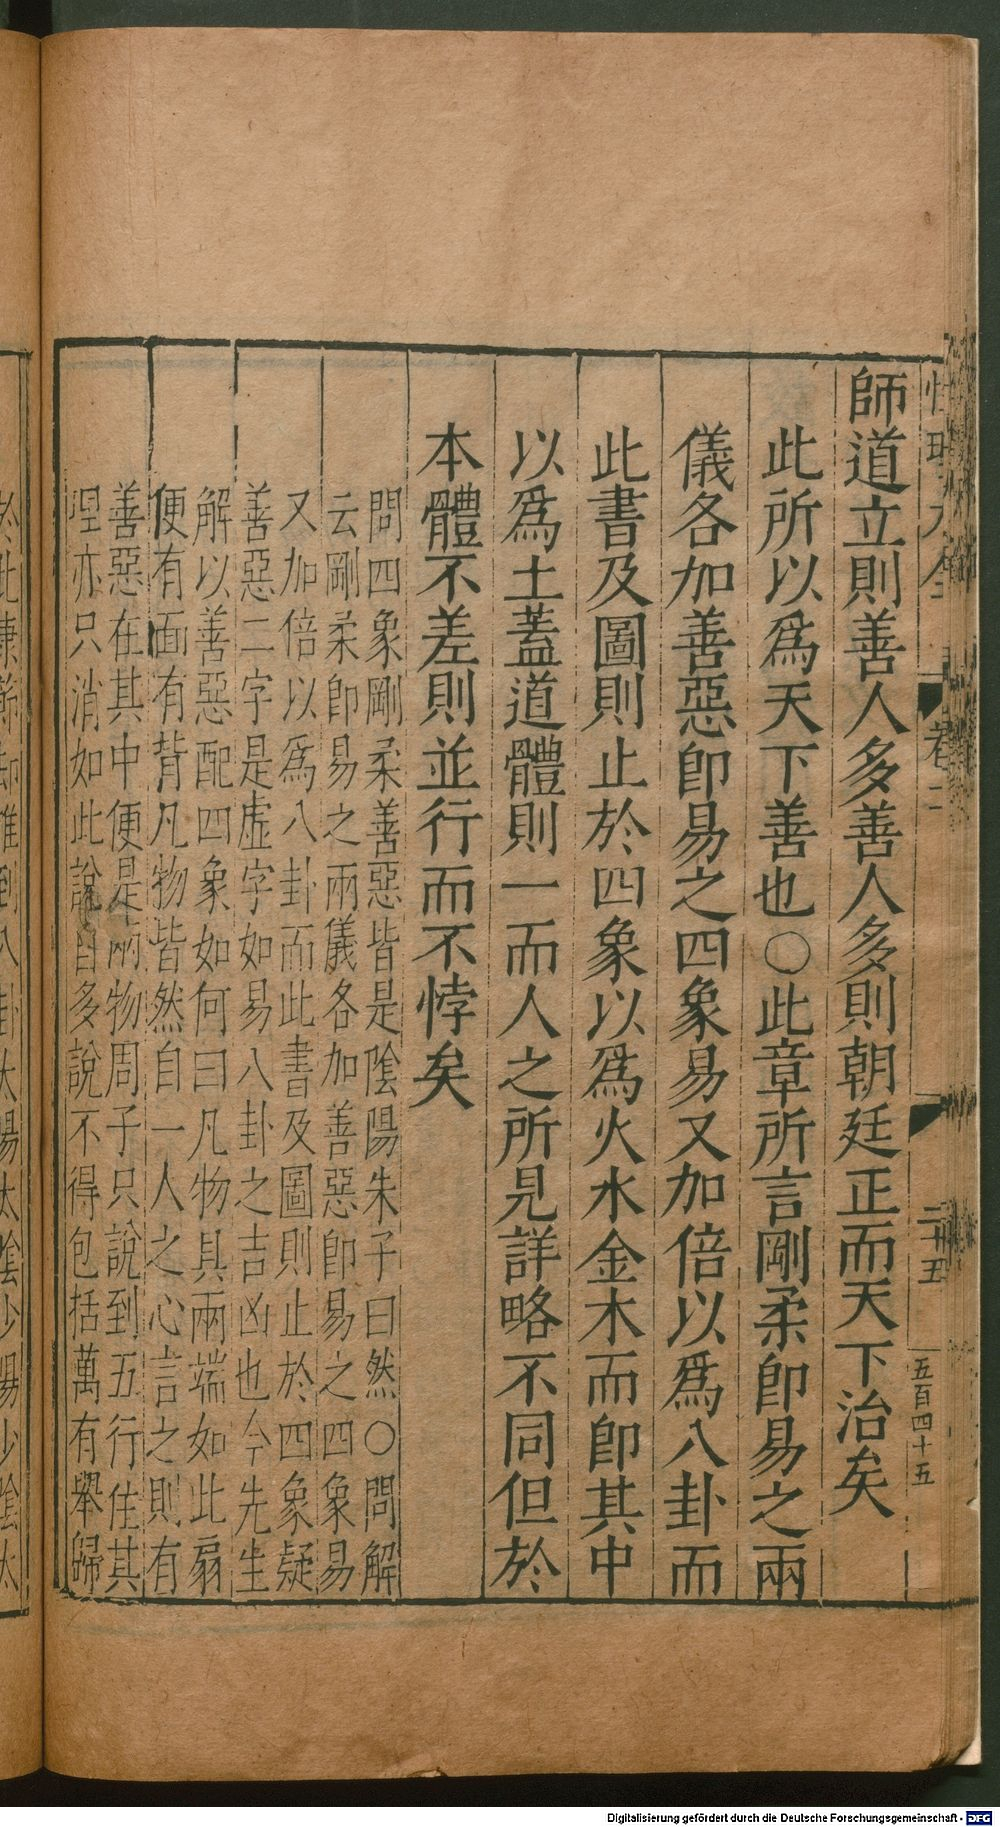 師道立則善人多善人多則朝廷正而天下治矣
此所以爲天下善也○此章所言剛柔即易之兩
儀各加善惡即易之四象易又加倍以爲八卦而
此書及圖則止於四象以爲火水金木而即其中
以爲土蓋道體則一而人之所見詳略不同但於
本體不差則並行而不悖矣
問四象剛柔善惡皆是陰陽朱子曰然○問解
云剛柔即易之兩儀各加善惡即易之四象易
又加倍以爲八卦而此書及圖則止於四象疑
善惡二字是虛字如易八卦之吉凶也今先生
解以善惡配四象如何曰凡物具兩端如此扇
便有面有背凡物皆然自一人之心言之則有
善惡在其中便是兩物周子只說到五行住其
理亦只消如此說自多說不得包括萬有舉歸
於此康節却推到八卦太陽太陰少陽少陰太
卷二
二十五
五百四十五
Digitalisierung gefördert durch die Deutsche Forschungsgemeinschaft - DFG